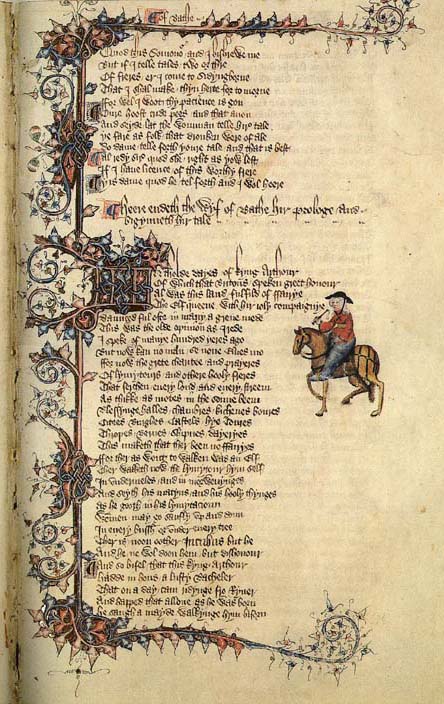 Of Bathe
Quod this Somono and I bishrewe me
But if I telle tales two or thre
Of freres er I come to Sidyngborne
That I shal make thyn herte for to morne
ffor wel I woot thy pacience is gon
Oure hoost cride pees and that anon
And seyde lat the womman telle hire tale
Ye fare as folk that dronken were of ale
Do dame telle forth youre tale and that is best
Al redy sire quod she right as yow lest
If I have licence of this worthy frere
Yis dame quod he tel forth and I wol heere
Heere endeth the Wyf of Bathe hir Prologe And
bigynneth hir tale
In tholde dayes of Kyng Arthour
Of which that Britons speken greet honour
Al was this land fulfild of ffairye
The Elf queene with hir joly compaignye
Daunced ful ofte in many a grene mede
This was the olde opinion as I rede
I speke of manye hundred yeres ago
But now kan no man se none Elves mo
ffor now the grete charitee and prayeres
Of lymytours and othere hooly freres
That serchen every lond and every streem
As thikke as motes in the sonne beem
Blessynge halles chambres kichenes boures
Citees Burghes Castels hye Toures
Thropes Bernes Shipnes dayeryes
This maketh that ther been no ffairyes
ffor ther as wont to walken was an Elf
Ther walketh now the lymytour hym self
In undermeles and in morwenynges
And seyth his matyns and his hooly thynges
As he gooth in his lymytacioun
Wommen may go saufly up and doun
In every bussh or under every tree
Ther is noon oother Incubus but he
And he ne wol doon hem but dishonour
And so bifel that this kyng Arthour
Hadde in hous a lusty Bacheler
That on a day cam ridynge fro Ryver
And happed that allone as he was born
He saugh a mayde walkynge hym biforn